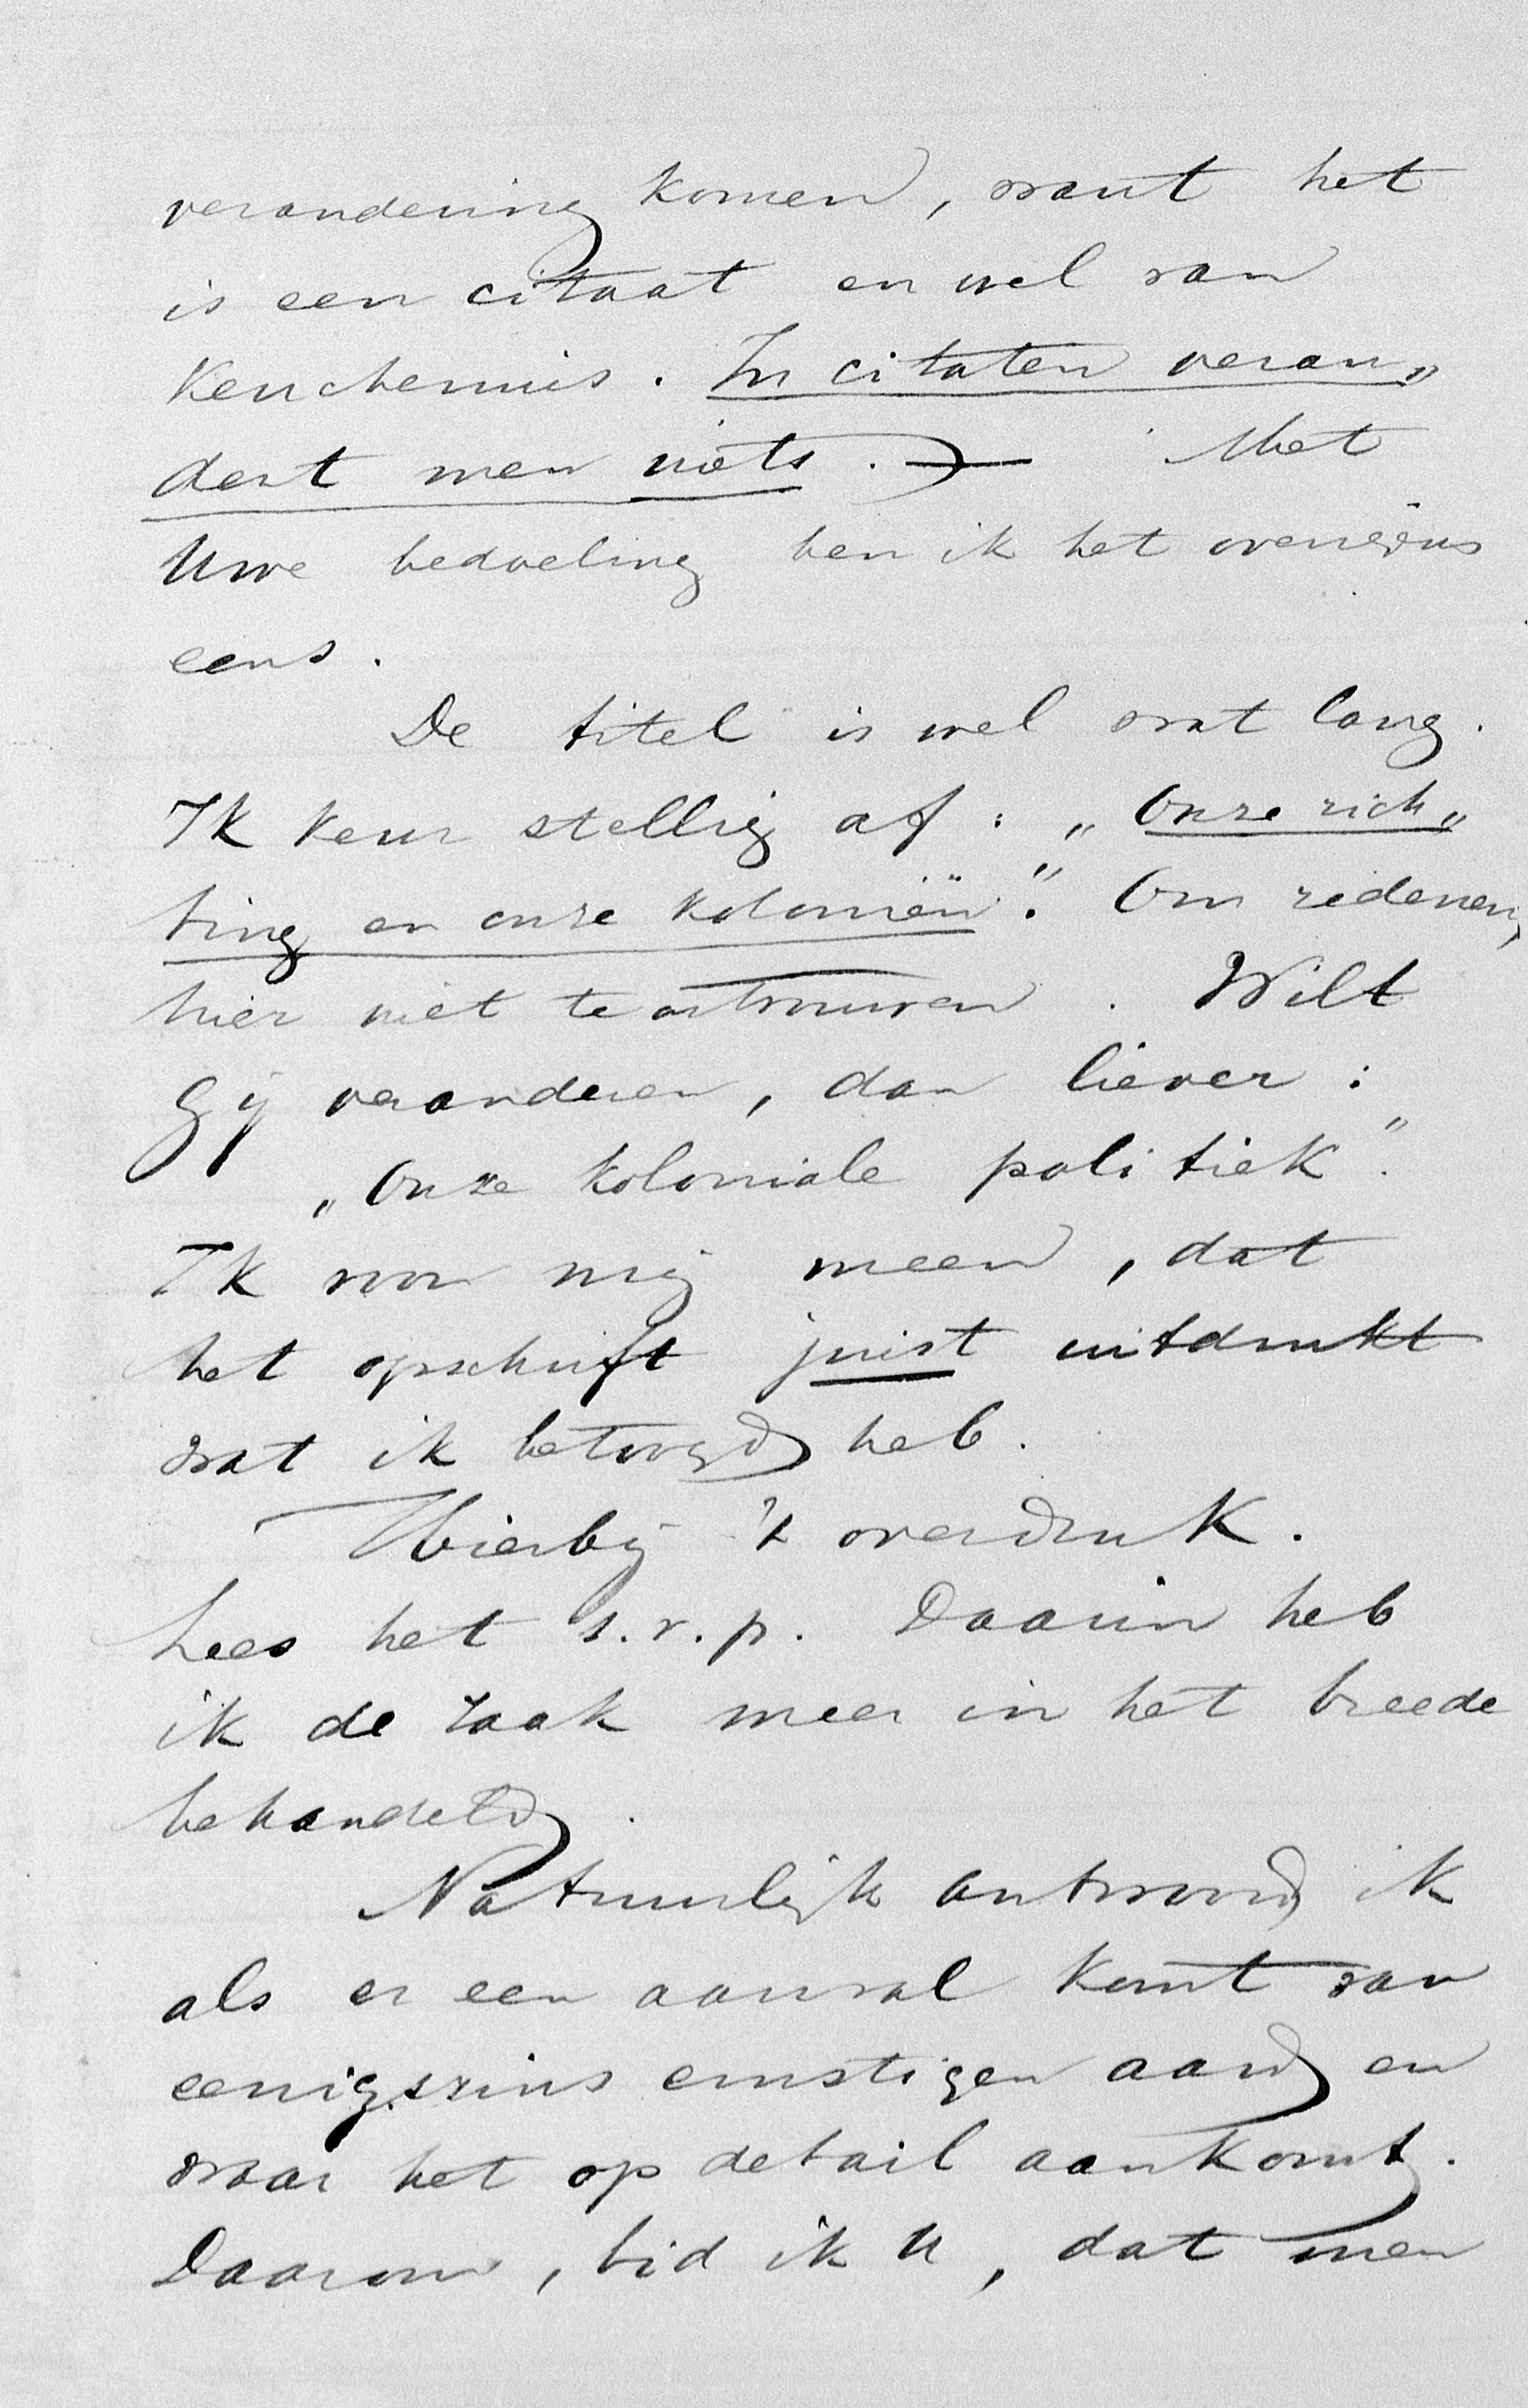 verandering komen, want het
is een citaat en wel van
Keuchenius. In citaten veran„
dert men niets. — Met
Uwe bedoeling ben ik het overigens
eens.
De titel is wel wat lang.
Ik keur stellig af: „Onze rich„
ting en onze koloniën.” Om redenen,
hier niet te ontvouwen. Wilt
gij veranderen, dan liever:
„Onze koloniale politiek.”
Ik voor mij meen, dat
het opschrift juist uitdrukt
wat ik betoogd heb.
Hierbij 't overdruk.
Lees het s.v.p. Daarin heb
ik de zaak meer in het breede
behandeld.
Natuurlijk antwoord ik
als er een aanval komt van
eenigszins ernstigen aard en
waar het op detail aankomt.
Daarom, bid ik U, dat men